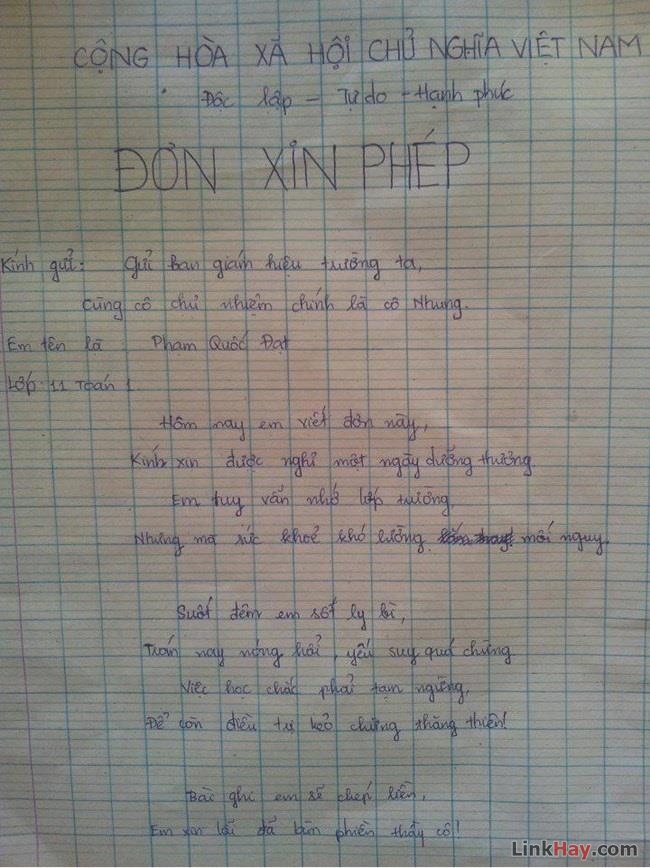 CỘNG HÒA XÃ HỘI CHỦ NGHĨA VIỆT NAM
Độc lập - Tự do - Hạnh phúc
ĐƠN XIN PHÉP
Kính gửi: Gửi ban giám hiệu trường ta,
Cùng cô chủ nhiệm chính là cô Nhung.
Em tên là Phạm Quốc Đạt
Lớp: 11 Toán 1
Hôm nay em viết đơn này,
Kính xin được nghỉ một ngày dưỡng thương
Em tuy vẫn nhớ lớp trường,
Nhưng mà sức khoẻ khó lường mối nguy.
Suốt đêm em sốt ly bì,
Trán nay nóng hổi, yếu suy quá chừng
Việc học chắc phải tạm ngừng,
Để còn điều trị kẻo chừng thăng thiên!
Bài ghi em sẽ chép liền,
Em xin lỗi đã làm phiền thầy cô!
LinkHay.com